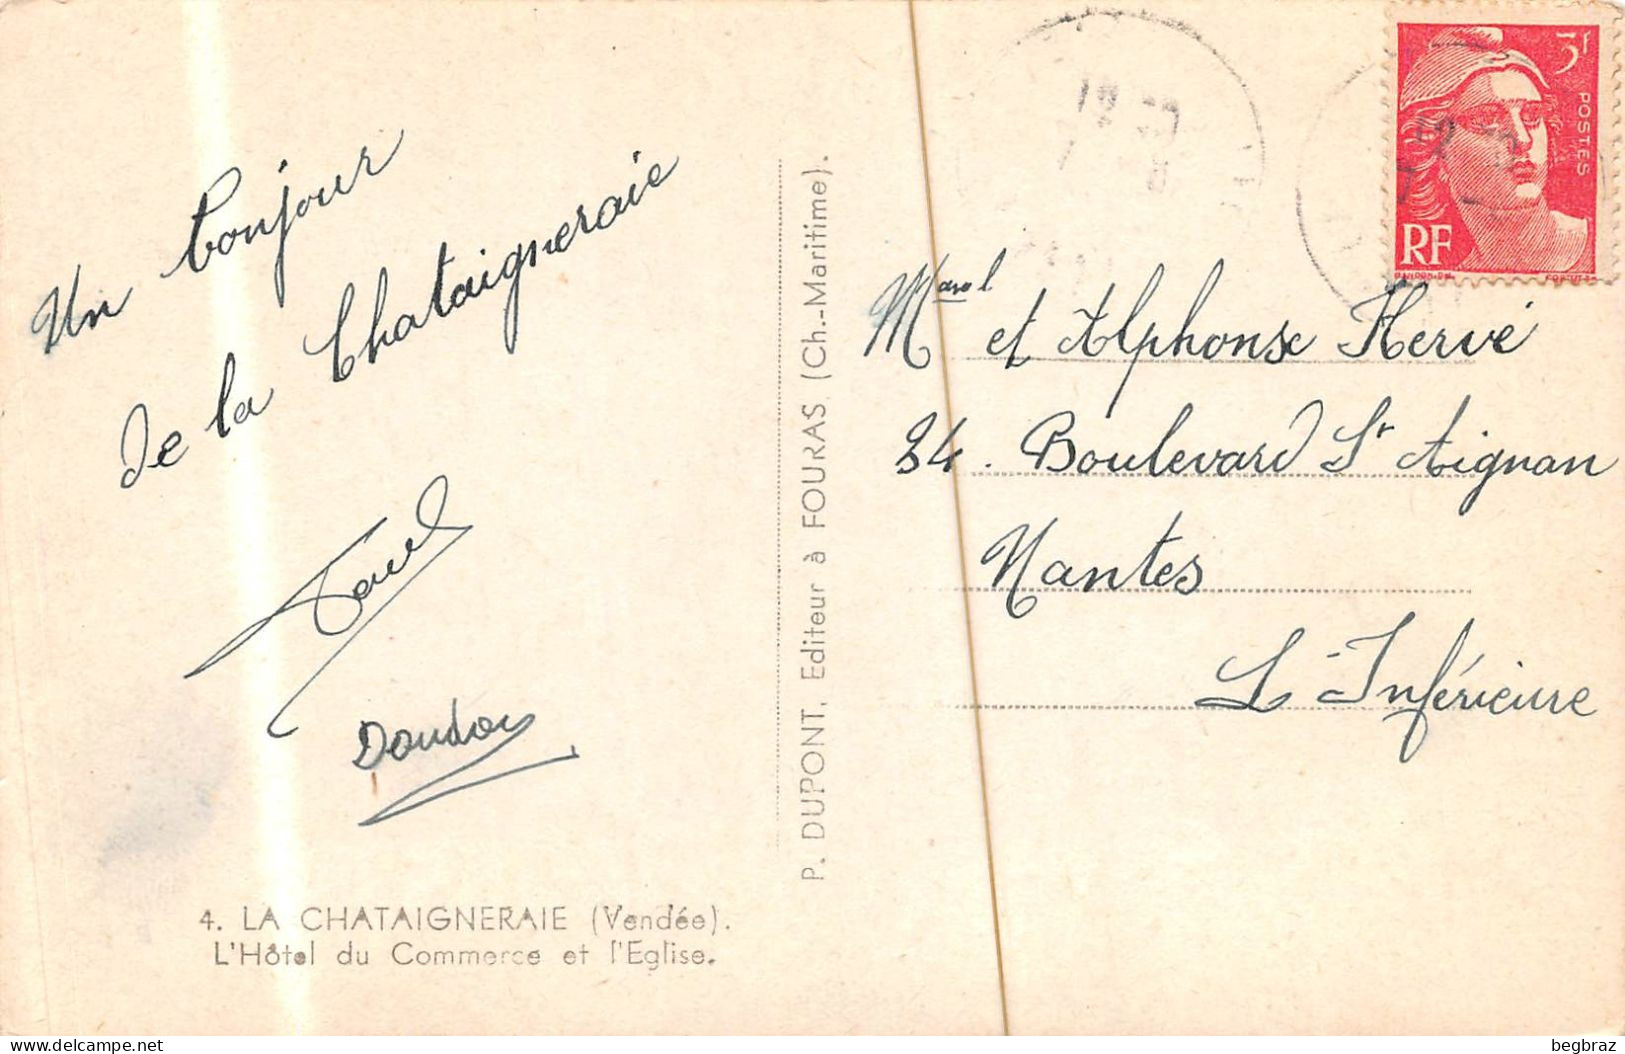 Un bonjour
de la Chataigneraie
Doudou
4. LA CHATAIGNERAIE (Vendée).
L'Hôtel du Commerce et l'Eglise.
P. DUPONT, Editeur à FOURAS (Ch.-Maritime).
3f
POSTES
RF
et Alphonse Hervé
34. Boulevard St Aignan
Nantes
L-Inférieure
begbraz